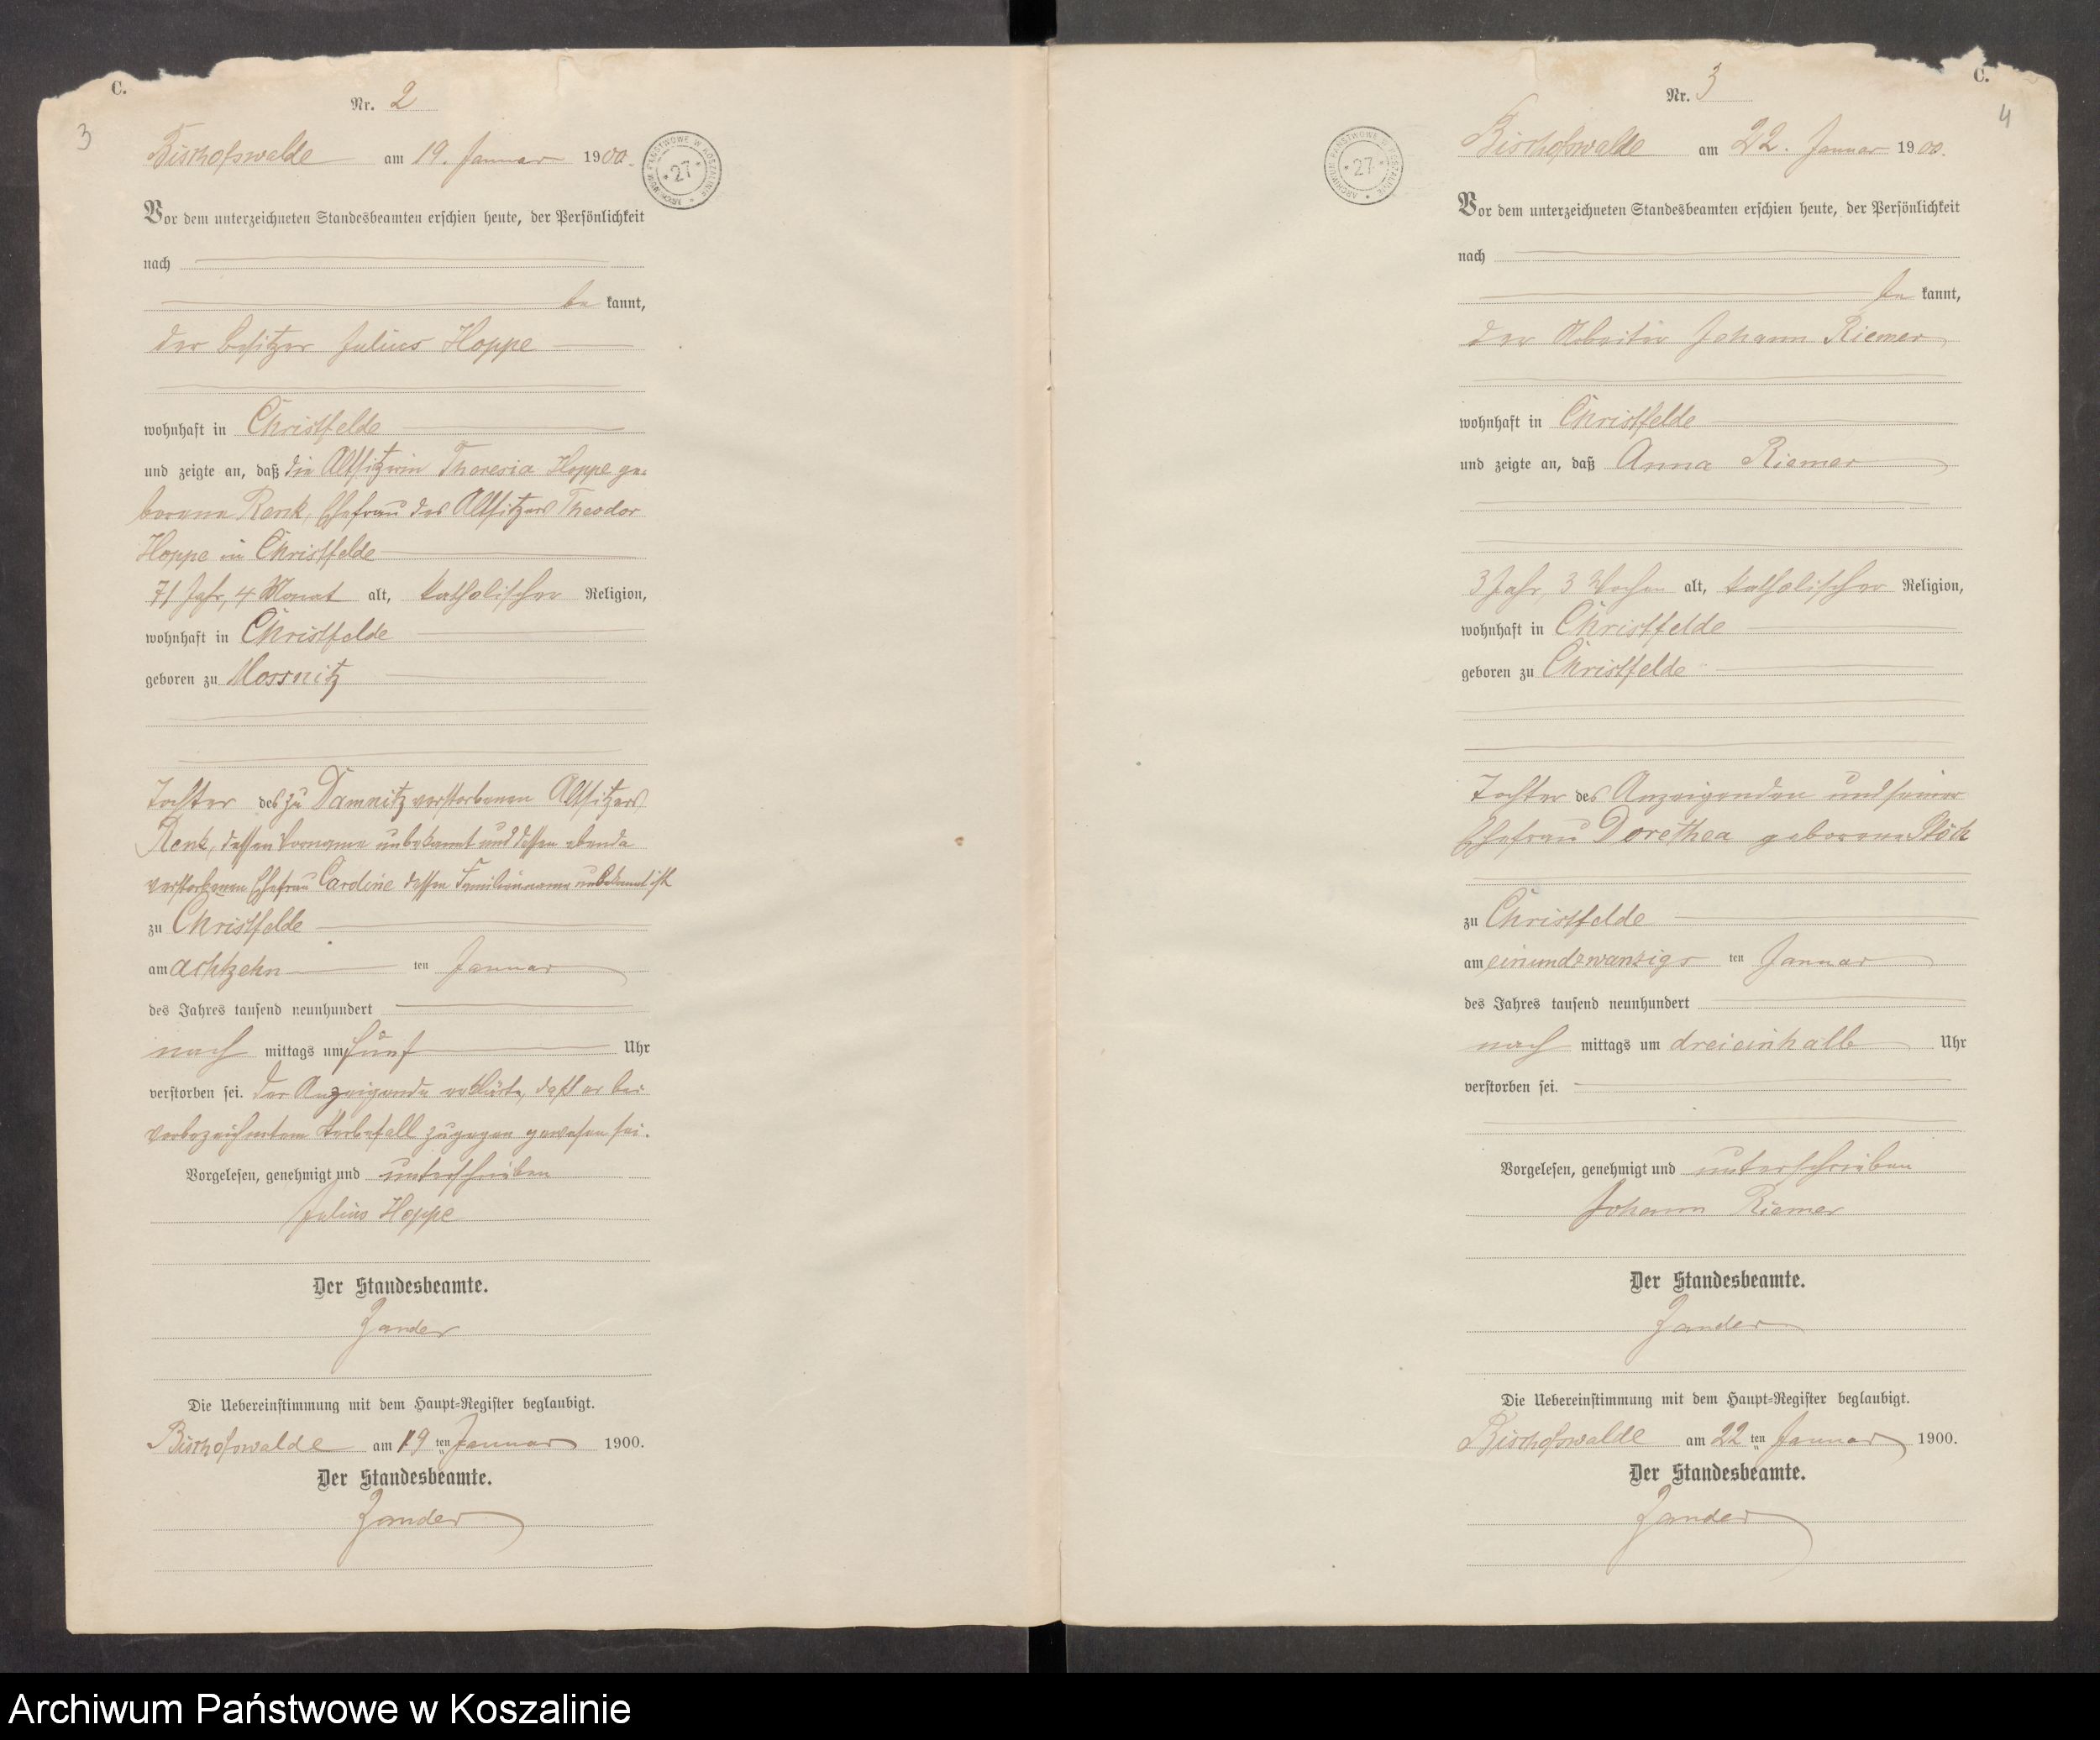 C.
Nr. 2
3
Bischofswalde am 19. Januar 1900.
ARCHIWUM PAŃSTWOWE W KOSZALINIE * 27 *
Vor dem unterzeichneten Standesbeamten erschien heute, der Persönlichkeit
nach
be kannt,
der Besitzer Julius Hoppe
wohnhaft in Christfelde
und zeigte an, daß die Altsitzerin Theresia Hoppe ge-
borene Renk, Ehefrau des Altsitzers Theodor
Hoppe in Christfelde
71 Jahr, 4 Monat alt, katholischer Religion,
wohnhaft in Christfelde
geboren zu Mossnitz
Tochter des zu Damnitz verstorbenen Altsitzers
Renk, dessen Vorname unbekannt und dessen ebenda
verstorbenen Ehefrau Cardine dessen Familienname unbekannt ist
zu Christfelde
am achtzehn ten Januar
des Jahres tausend neunhundert
nach mittags um fünf Uhr
verstorben sei. Der Anzeigende erklärte, daß er bei
vorbezeichnetem Sterbefall zugegen gewesen sei.
Vorgelesen, genehmigt und unterschrieben
Julius Hoppe
Der Standesbeamte.
Zander
Die Uebereinstimmung mit dem Haupt-Register beglaubigt.
Bischofswalde am 19 ten Januar 1900.
Der Standesbeamte.
Zander
C.
Nr. 3
4
Bischofswalde am 22. Januar 1900.
ARCHIWUM PAŃSTWOWE W KOSZALINIE * 27 *
Vor dem unterzeichneten Standesbeamten erschien heute, der Persönlichkeit
nach
be kannt,
der Arbeiter Johann Riemer
wohnhaft in Christfelde
und zeigte an, daß Anna Riemer
3 Jahr, 3 Wochen alt, katholischer Religion,
wohnhaft in Christfelde
geboren zu Christfelde
Tochter des Anzeigenden und seiner
Ehefrau Dorethea geborene Plöck
zu Christfelde
am einundzwanzigs ten Januar
des Jahres tausend neunhundert
nach mittags um dreieinhalb Uhr
verstorben sei.
Vorgelesen, genehmigt und unterschrieben
Johann Riemer
Der Standesbeamte.
Zander
Die Uebereinstimmung mit dem Haupt-Register beglaubigt.
Bischofswalde am 22 ten Januar 1900.
Der Standesbeamte.
Zander
Archiwum Państwowe w Koszalinie